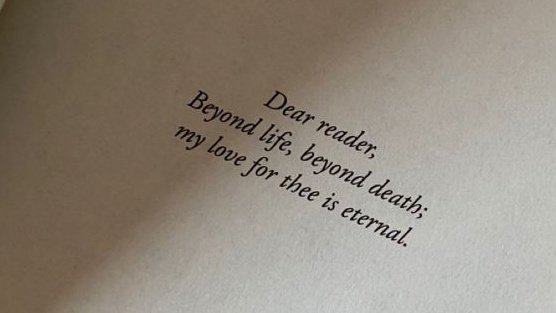 Dear reader,
Beyond life, beyond death;
my love for thee is eternal.